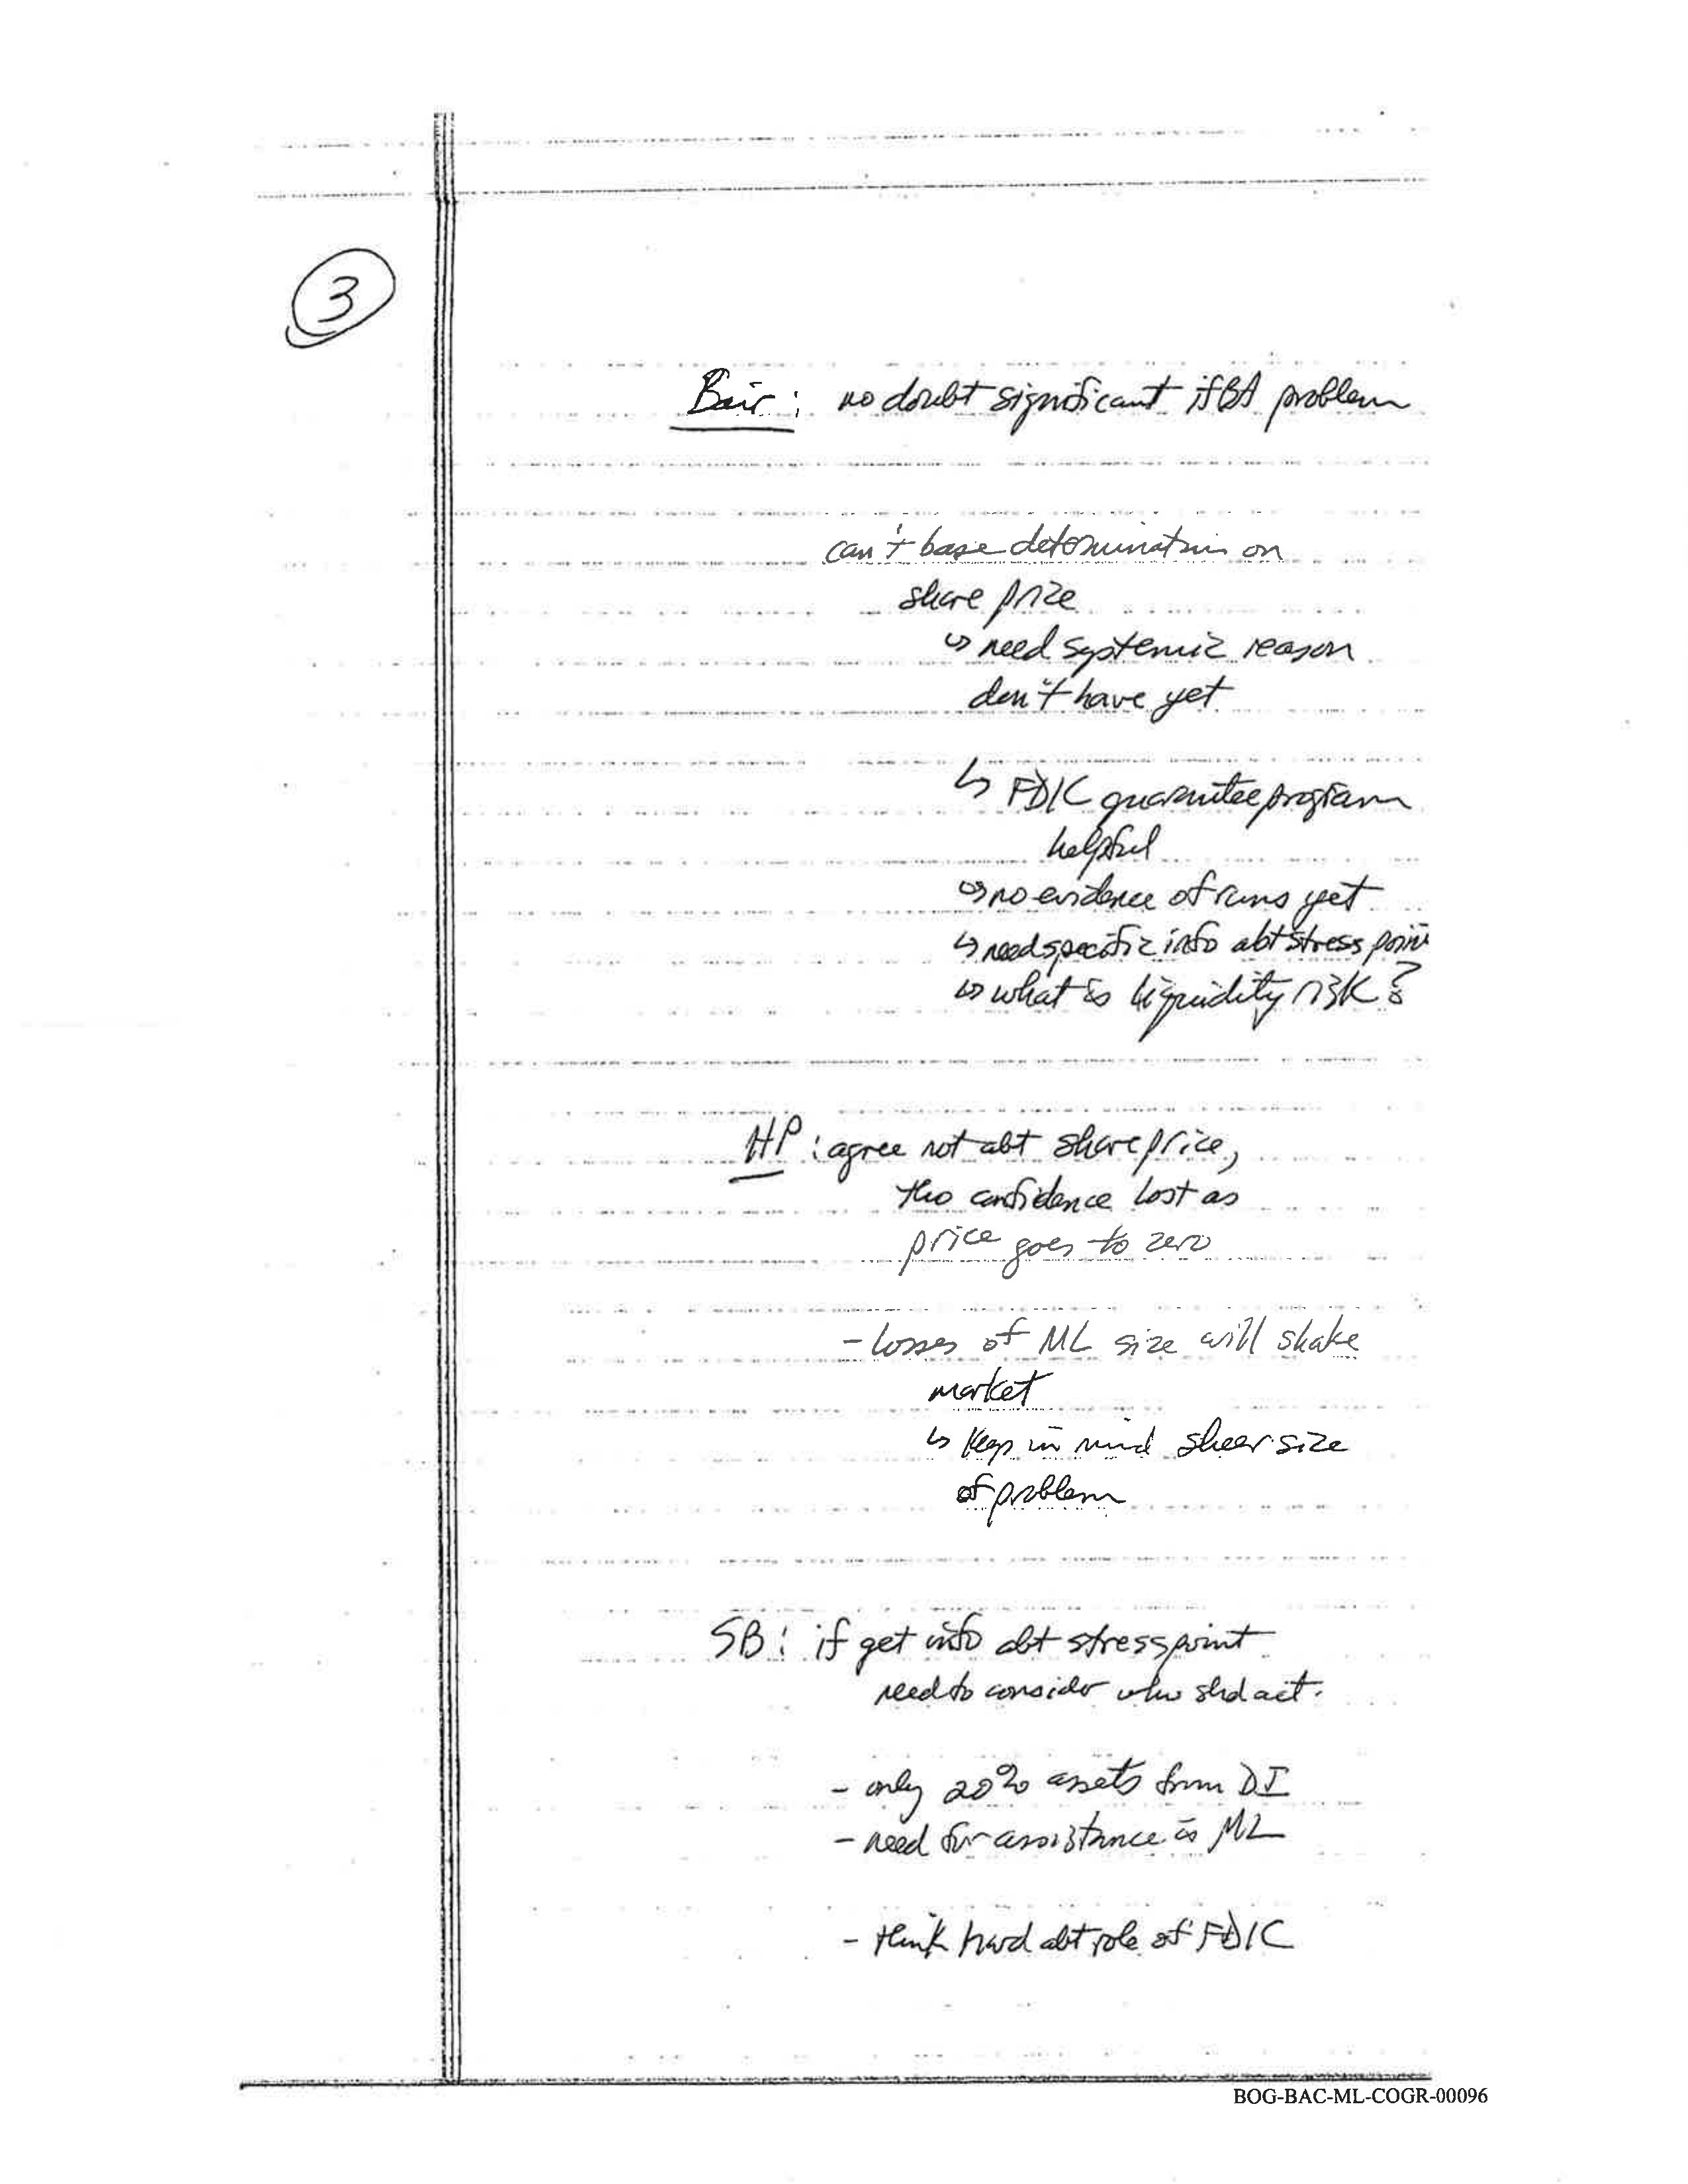 3
Bair: no doubt significant if BA problem
can't base determination on
share price
↳ need systemic reason
don't have yet
↳ FDIC guarantee program
helpful
↳ no evidence of runs yet
↳ need specific info abt stress point
↳ what is liquidity risk?
HP: agree not abt share price,
tho confidence lost as
price goes to zero
- losses of ML size will shake
market
↳ keep in mind sheer size
of problem
SB: if get info abt stress point
need to consider who shd act.
- only 20% assets from DI
- need for assistance is ML
- think hard abt role of FDIC
BOG-BAC-ML-COGR-00096